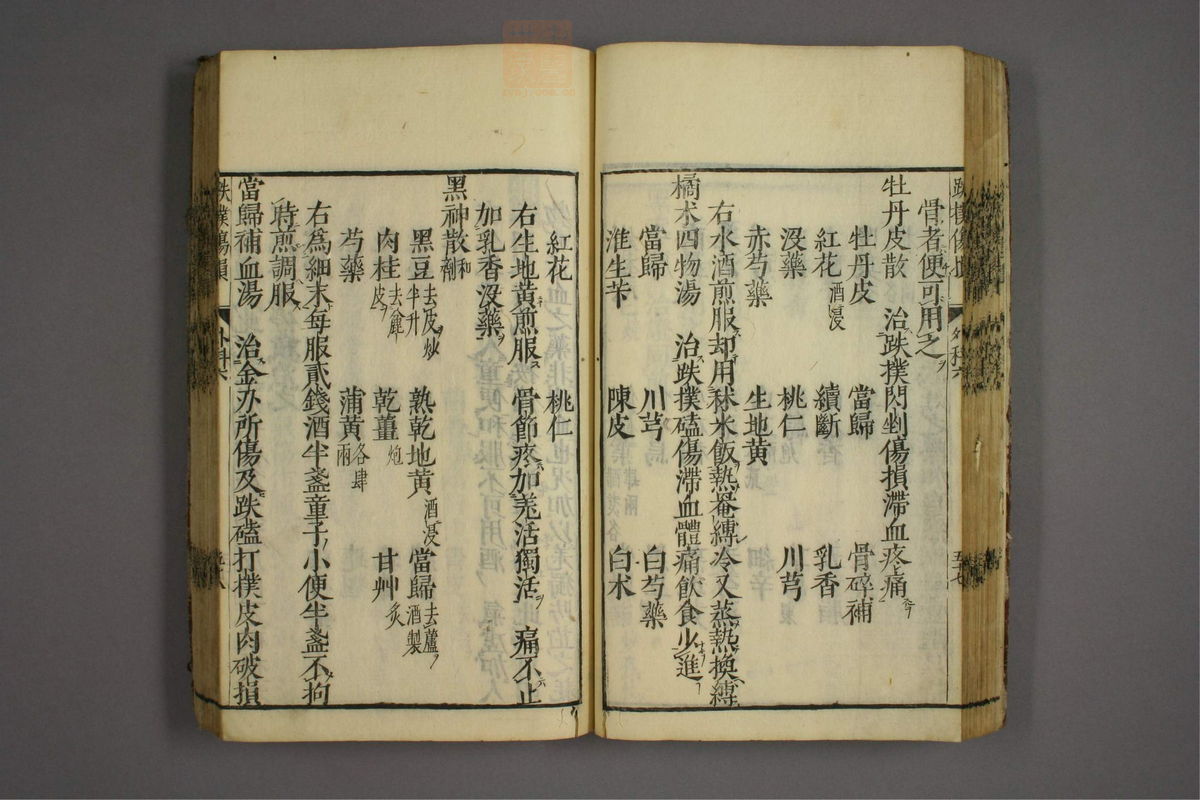 骨者便可用之
牡丹皮散 治跌撲閃剉傷損滯血疼痛
牡丹皮 當歸 骨碎補
紅花酒浸 續斷 乳香
沒藥 桃仁 川芎
赤芍藥 生地黃
右水酒煎服却用秫米飯熱罨縛冷又蒸熱換縛
橘朮四物湯 治跌撲磕傷滯血體痛飲食少進
當歸 川芎 白芍藥
淮生芐 陳皮 白朮
紅花 桃仁
右生地黃煎服骨節疼加羗活獨活 痛不止
加乳香沒藥
黑神散和劑
黑豆去皮炒半升 熟乾地黃酒浸 當歸去蘆酒製
肉桂去麄皮 乾薑炮 甘艸炙
芍藥 蒲黃各肆兩
右為細末每服貳錢酒半盞童子小便半盞不拘
時煎調服
當歸補血湯 治金刅所傷及跌磕打撲皮肉破損
跌撲傷損 外科六 五十八